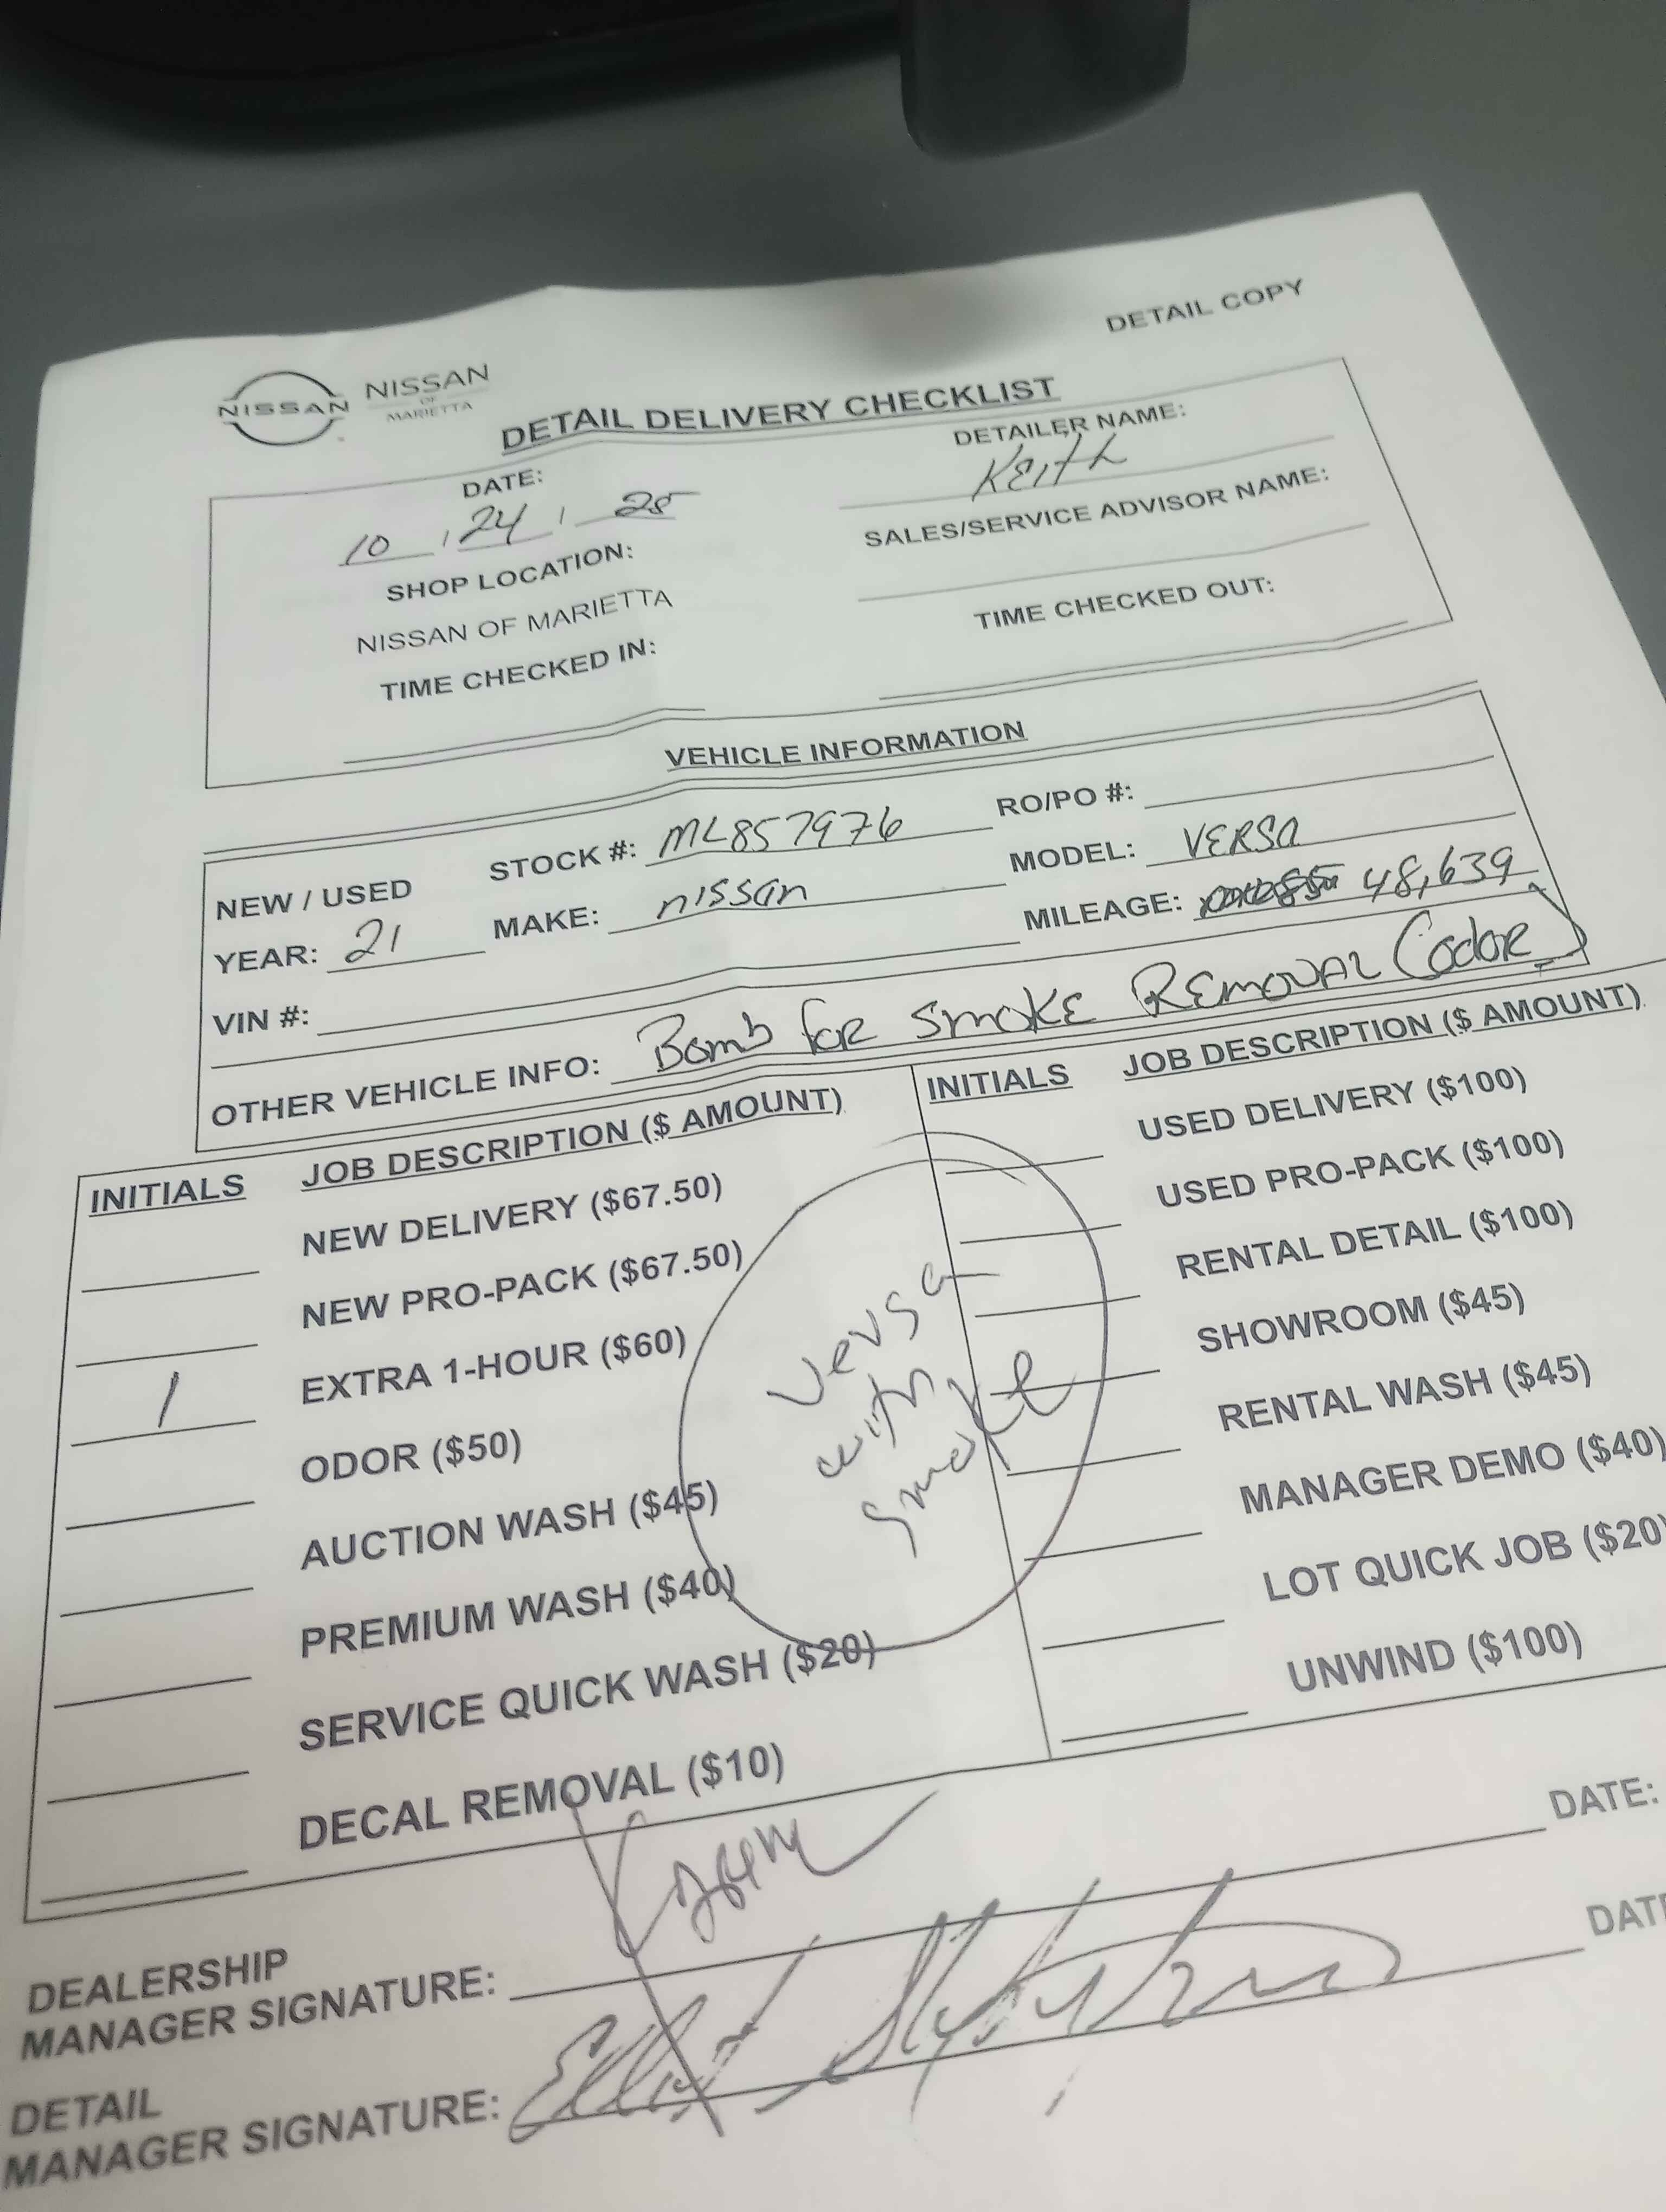 DETAIL COPY
NISSAN
NISSAN
OF
MARIETTA
DETAIL DELIVERY CHECKLIST
DATE:
10 / 24 / 25
DETAILER NAME:
Keith
SHOP LOCATION:
NISSAN OF MARIETTA
SALES/SERVICE ADVISOR NAME:
TIME CHECKED IN:
TIME CHECKED OUT:
VEHICLE INFORMATION
NEW / USED STOCK #: ML857976 RO/PO #:
YEAR: 21 MAKE: nissan MODEL: VERSA
VIN #: MILEAGE: 48,639
OTHER VEHICLE INFO: Bomb for SMOKE REMOVAL (odor)
INITIALS JOB DESCRIPTION ($ AMOUNT)
NEW DELIVERY ($67.50)
NEW PRO-PACK ($67.50)
1 EXTRA 1-HOUR ($60)
ODOR ($50)
AUCTION WASH ($45)
PREMIUM WASH ($40)
SERVICE QUICK WASH ($20)
DECAL REMOVAL ($10)
Versa
with
smoke
INITIALS JOB DESCRIPTION ($ AMOUNT)
USED DELIVERY ($100)
USED PRO-PACK ($100)
RENTAL DETAIL ($100)
SHOWROOM ($45)
RENTAL WASH ($45)
MANAGER DEMO ($40)
LOT QUICK JOB ($20)
UNWIND ($100)
DEALERSHIP
MANAGER SIGNATURE: DATE:
DETAIL
MANAGER SIGNATURE: DATE